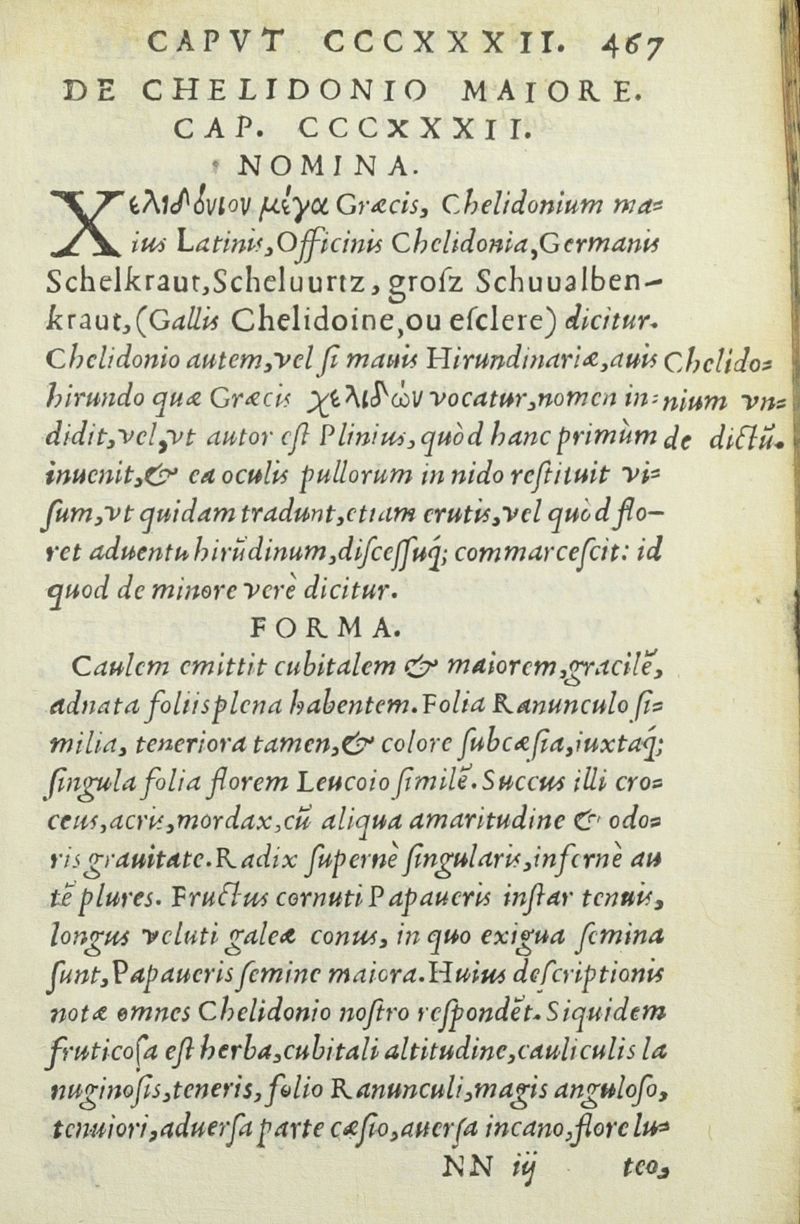 CAPVT CCCXXXII. 467
DE CHELIDONIO MAIORE.
CAP. CCCXXXII.
NOMINA.
Χελιδόνιον μέγα Græcis, Chelidonium ma=
ius Latinis, Officinis Chelidonia, Germanis
Schelkraut, Scheluurtz, groſz Schuualben-
kraut, (Gallis Chelidoine, ou eſclere) dicitur.
Chelidonio autem, vel ſi mauis Hirundinariæ, auis
hirundo quæ Græcis χελιδὼν vocatur, nomen in=
didit, vel, vt autor eſt Plinius, quòd hanc primùm
inuenit, & ea oculis pullorum in nido reſtituit vi=
ſum, vt quidam tradunt, etiam erutis, vel quòd flo-
ret aduentu hirũdinum, diſceſſuq́; commarceſcit: id
quod de minore verè dicitur.
Chelido=
nium vn=
de dictũ.
FORMA.
Caulem emittit cubitalem & maiorem, gracilẽ,
adnata foliis plena habentem. Folia Ranunculo ſi=
milia, teneriora tamen, & colore ſubcæſia, iuxtaq́;
ſingula folia florem Leucoio ſimilẽ. Succus illi cro=
ceus, acris, mordax, cũ aliqua amaritudine & odo=
ris grauitate. Radix ſupernè ſingularis, infernè au
tẽ plures. Fructus cornuti Papaueris inſtar tenuis,
longus veluti galeæ conus, in quo exigua ſemina
ſunt, Papaueris ſemine maiora. Huius deſcriptionis
notæ omnes Chelidonio noſtro reſpondẽt. Siquidem
fruticoſa eſt herba, cubitali altitudine, cauliculis la
nuginoſis, teneris, folio Ranunculi, magis anguloſo,
tenuiori, aduerſa parte cæſio, auerſa incano, flore lu=
NN iij teo,